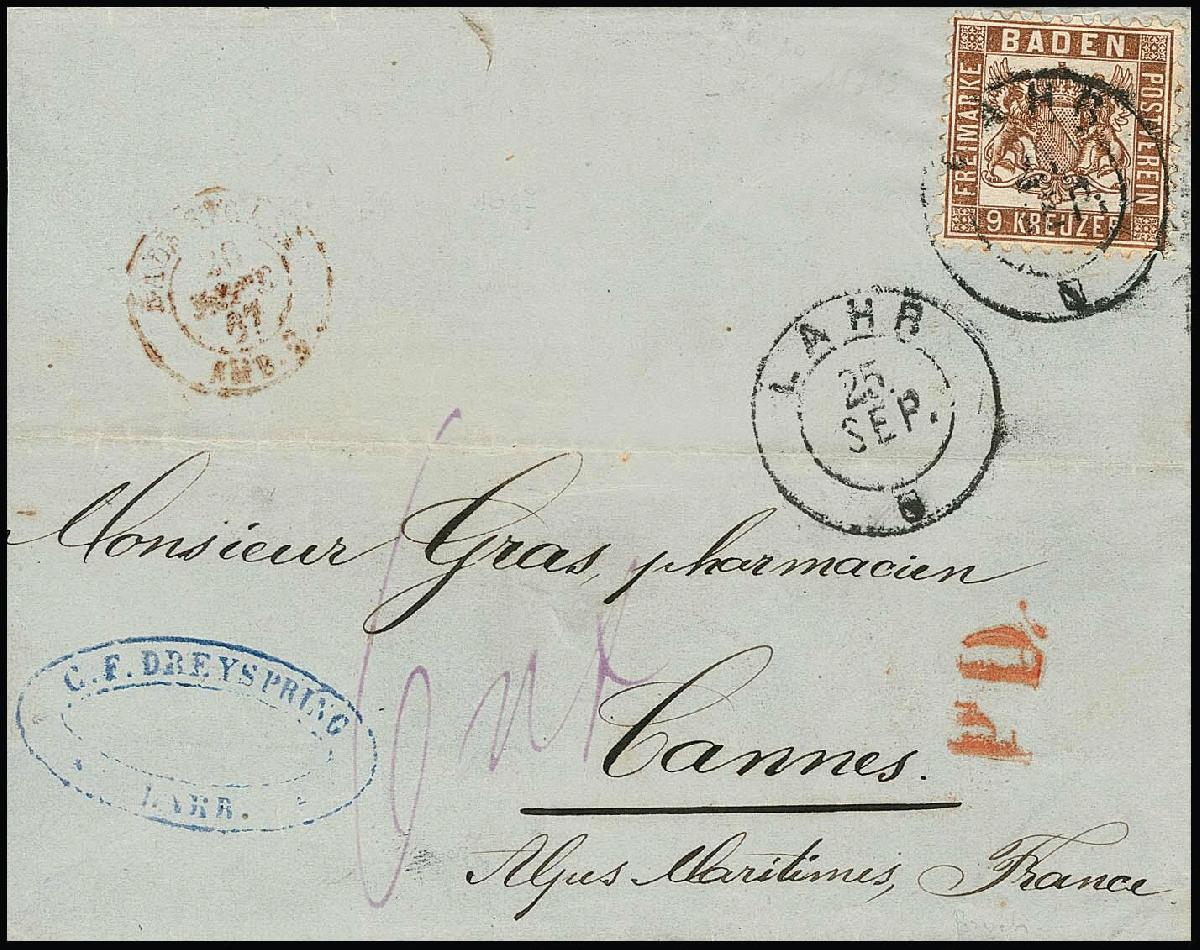 BADEN
FREIMARKE
POSTVEREIN
9 KREUZER
LAHR
LAHR
25.
SEP.
26
SEPT
67
AMB. S
Monsieur Gras, pharmacien
P.D.
Cannes.
Alpes Maritimes, France
C. F. DREYSPRING
LAHR.